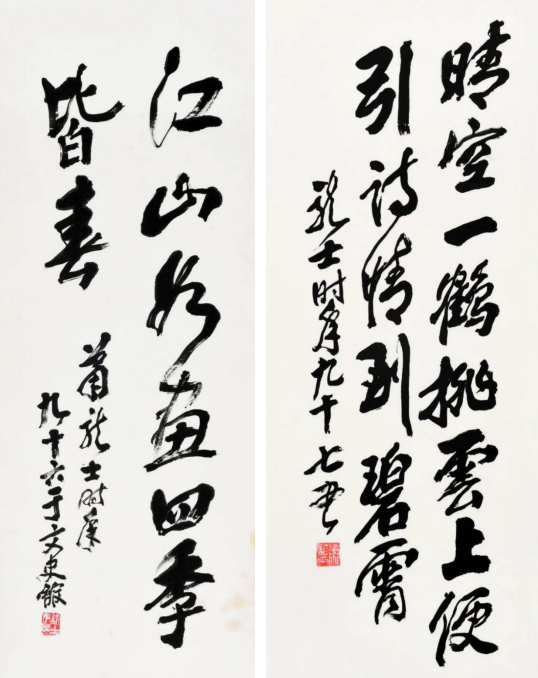 晴空一鶴排雲上便
引诗情到碧霄
龙士时年九十七书
江山如画四季
皆春
萧龙士时年
九十六于文史館